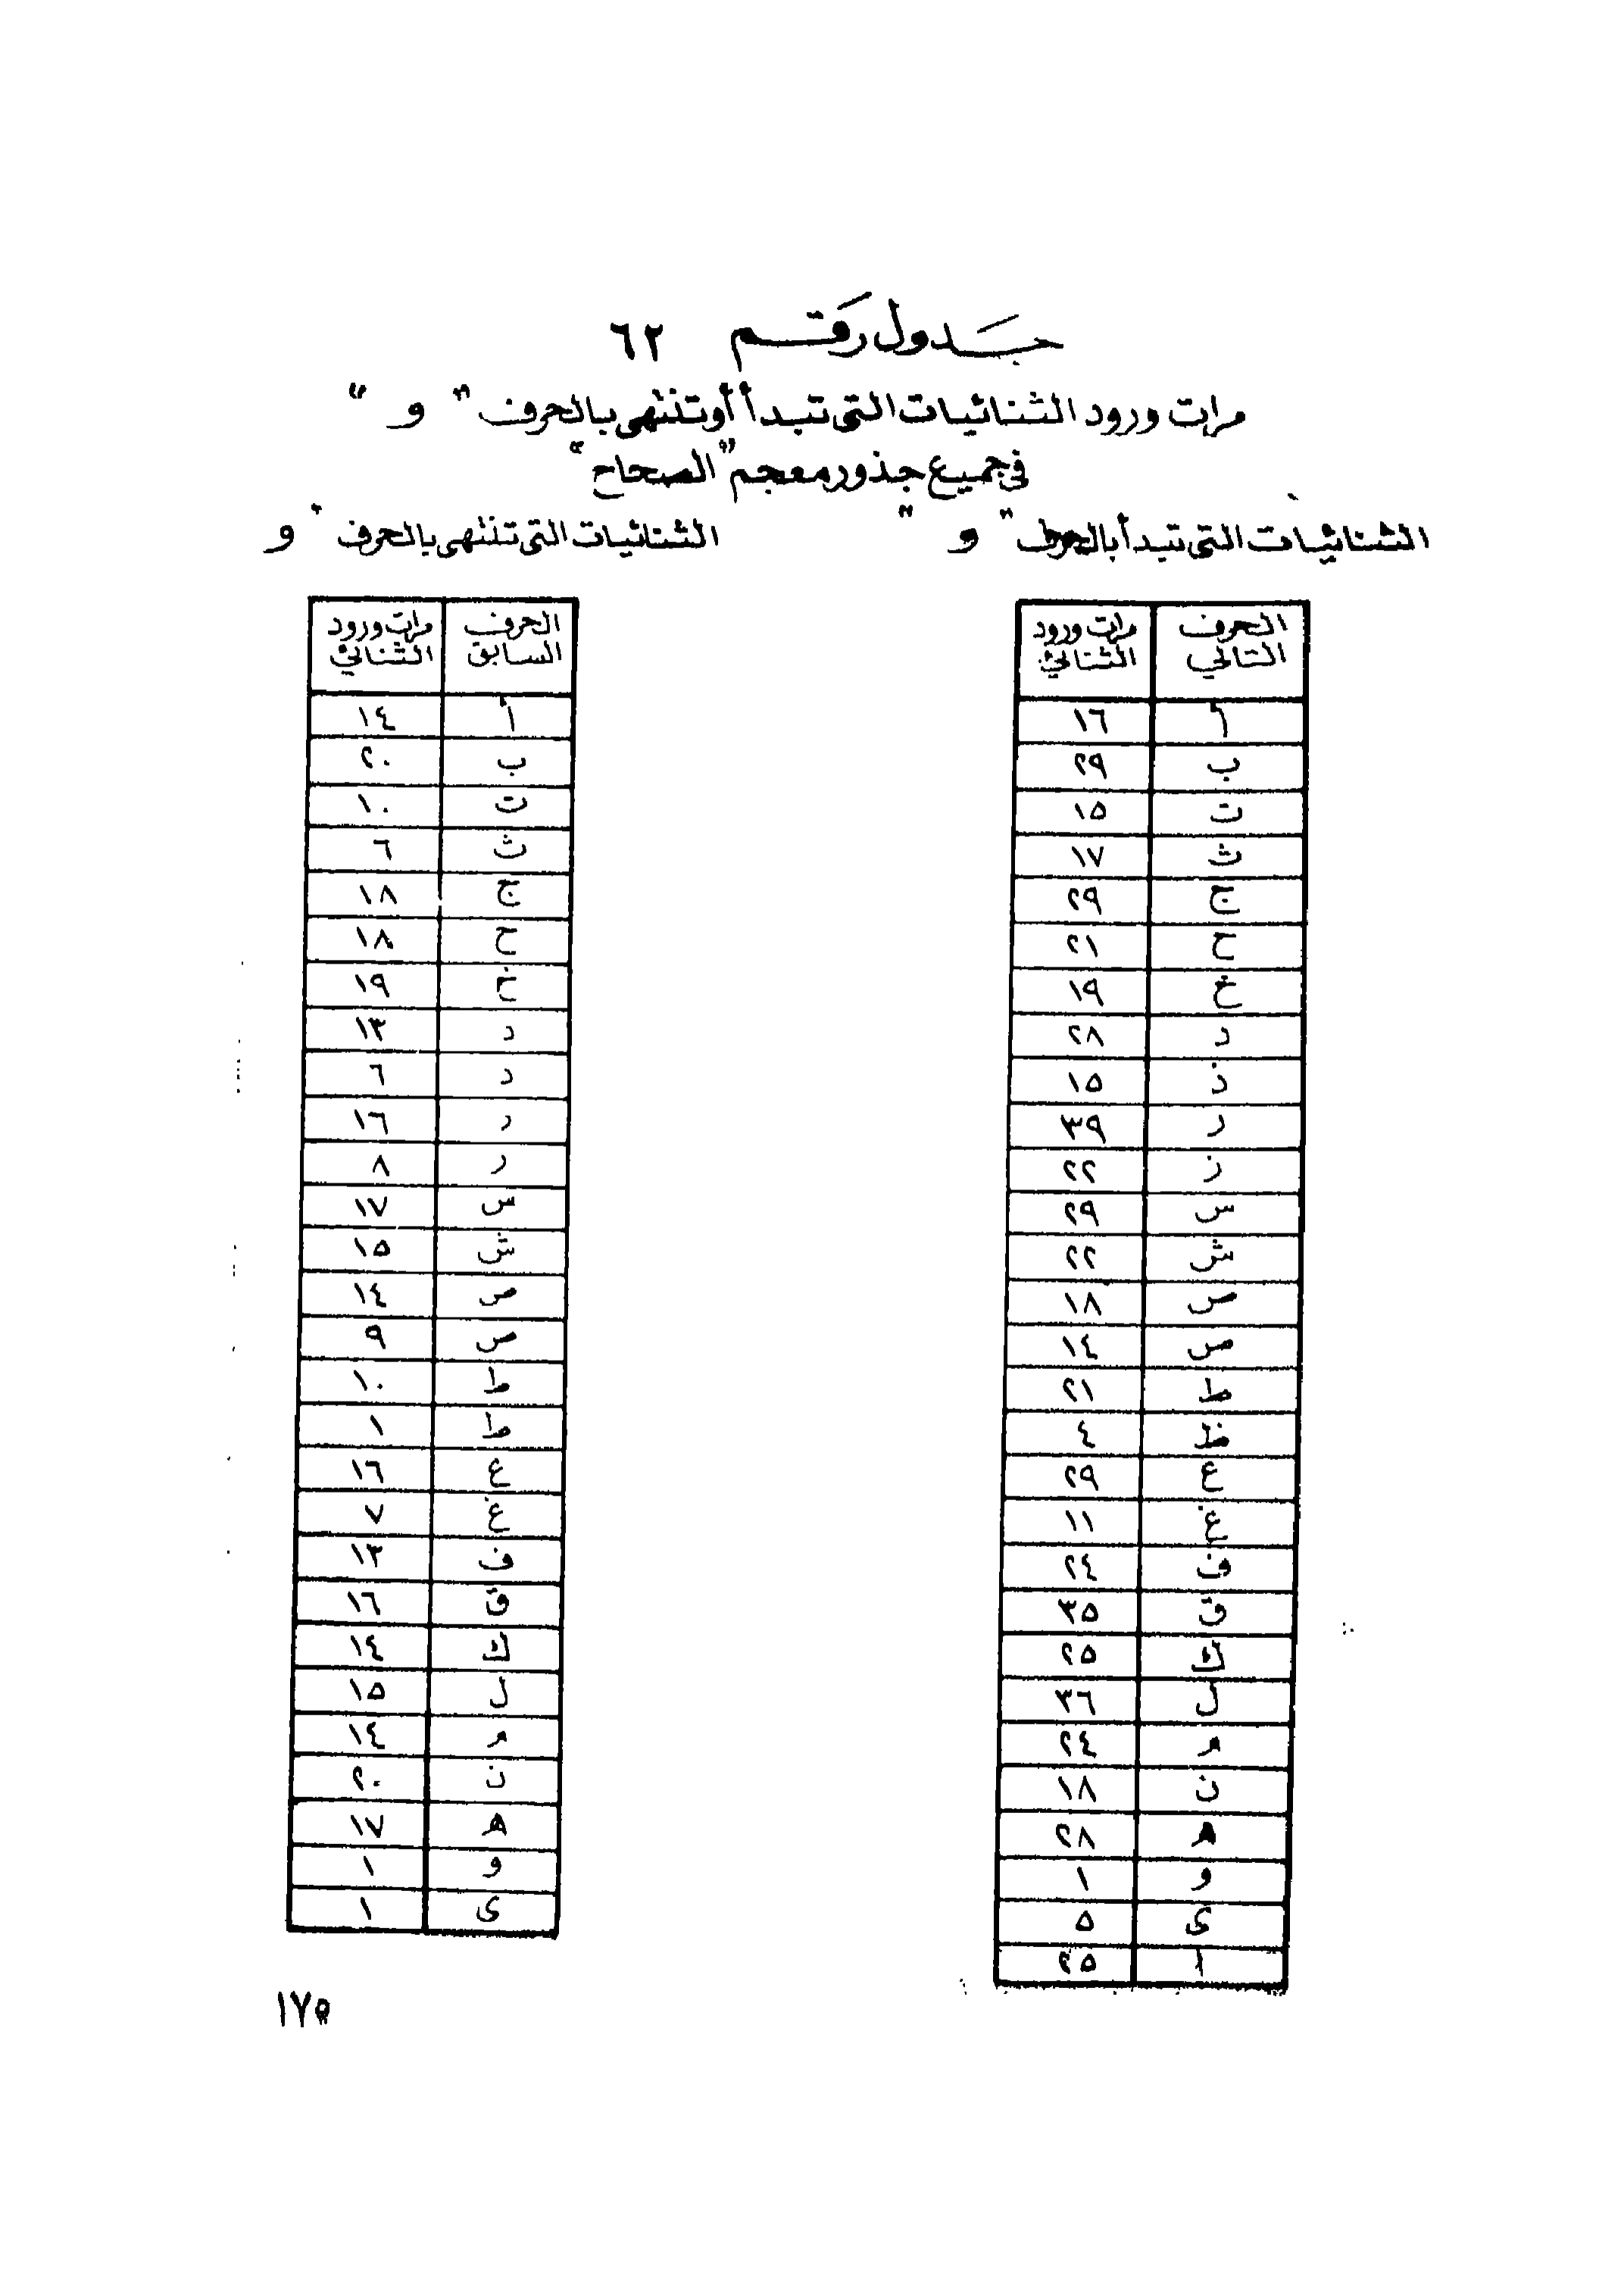 جدول رقم ٦٢
مرات ورود الثنائيات التى تبدأ أو تنتهى بالحرف " و "
في جميع جذور معجم "الصحاح"
الثنائيات التى تبدأ بالحرف " و "
الحرف التالي	مرات ورود الثنائي
أ	١٦
ب	٢٩
ت	١٥
ث	١٧
ج	٢٩
ح	٢١
خ	١٩
د	٢٨
ذ	١٥
ر	٣٩
ز	٢٢
س	٢٩
ش	٢٢
ص	١٨
ص	١٤
ط	٢١
ظ	٤
ع	٢٩
غ	١١
ف	٢٤
ق	٣٥
ك	٢٥
ل	٣٦
م	٢٤
ن	١٨
ه	٢٨
و	١
ى	٥
ا	٢٥
الثنائيات التى تنتهى بالحرف " و
الحرف السابق	مرات ورود الثنائي
أ	١٤
ب	٢٠
ت	١٠
ث	٦
ج	١٨
ح	١٨
خ	١٩
د	١٣
د	٦
ر	١٦
ر	٨
س	١٧
ش	١٥
ص	١٤
ص	٩
ط	١٠
ط	١
ع	١٦
غ	٧
ف	١٣
ق	١٦
ك	١٤
ل	١٥
م	١٤
ن	٢٠
ه	١٧
و	١
ى	١
١٧٥